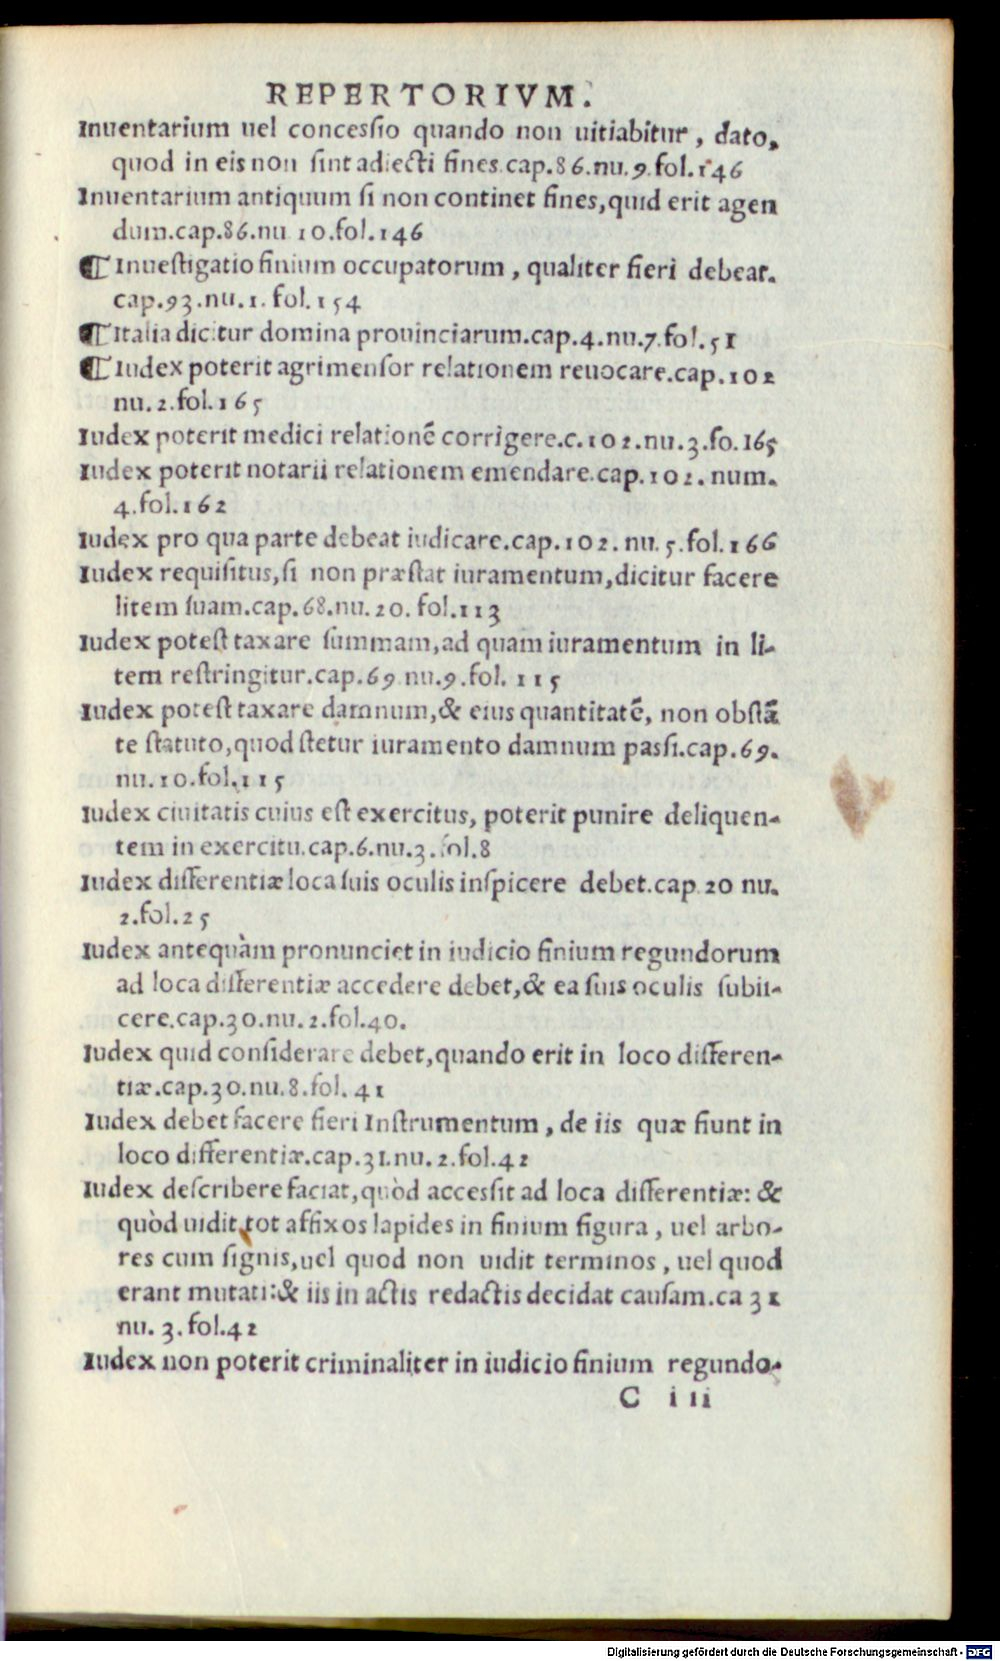 REPERTORIVM.
Inuentarium uel concessio quando non uitiabitur, dato,
quod in eis non sint adiecti fines.cap.86.nu.9.fol.146
Inuentarium antiquum si non continet fines,quid erit agen
dum.cap.86.nu 10.fol.146
¶ Inuestigatio finium occupatorum, qualiter fieri debeat.
cap.93.nu.1.fol.154
¶ Italia dicitur domina prouinciarum.cap.4.nu.7.fol.51
¶ Iudex poterit agrimensor relationem reuocare.cap.102
nu.2.fol.165
Iudex poterit medici relationē corrigere.c.102.nu.3.fo.165
Iudex poterit notarii relationem emendare.cap.102.num.
4.fol.162
Iudex pro qua parte debeat iudicare.cap.102.nu.5.fol.166
Iudex requisitus,si non præstat iuramentum,dicitur facere
litem suam.cap.68.nu.20.fol.113
Iudex potest taxare summam,ad quam iuramentum in li-
tem restringitur.cap.69 nu.9.fol.115
Iudex potest taxare damnum,& eius quantitatē, non obstā
te statuto,quod stetur iuramento damnum passi.cap.69.
nu.10.fol.115
Iudex ciuitatis cuius est exercitus, poterit punire deliquen-
tem in exercitu.cap.6.nu.3.fol.8
Iudex differentiæ loca suis oculis inspicere debet.cap.20 nu.
2.fol.25
Iudex antequàm pronunciet in iudicio finium regundorum
ad loca differentiæ accedere debet,& ea suis oculis subii-
cere.cap.30.nu.2.fol.40.
Iudex quid considerare debet,quando erit in loco differen-
tiæ.cap.30.nu.8.fol.41
Iudex debet facere fieri Instrumentum, de iis quæ fiunt in
loco differentiæ.cap.31.nu.2.fol.42
Iudex describere faciat,quòd accessit ad loca differentiæ: &
quòd uidit tot affixos lapides in finium figura, uel arbo-
res cum signis,uel quod non uidit terminos, uel quod
erant mutati:& iis in actis redactis decidat causam.ca 31
nu.3.fol.42
Iudex non poterit criminaliter in iudicio finium regundo-
C iii
Digitalisierung gefördert durch die Deutsche Forschungsgemeinschaft - DFG